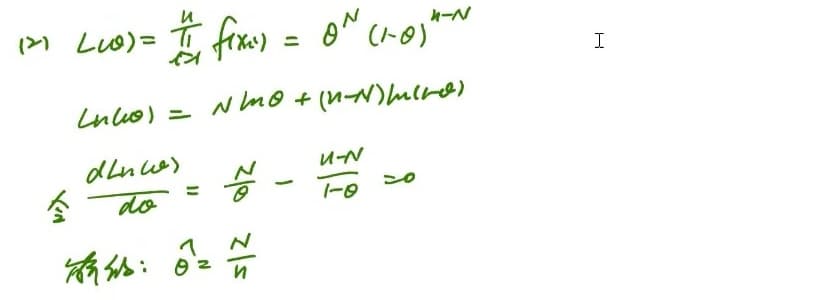 (2) L(θ) = ∏_{i=1}^{n} f(x_i) = θ^N (1-θ)^{n-N}
Ln L(θ) = N ln θ + (n-N) ln(1-θ)
令 dLn L(θ)/dθ = N/θ - (n-N)/(1-θ) = 0
解得: θ̂ = N/n